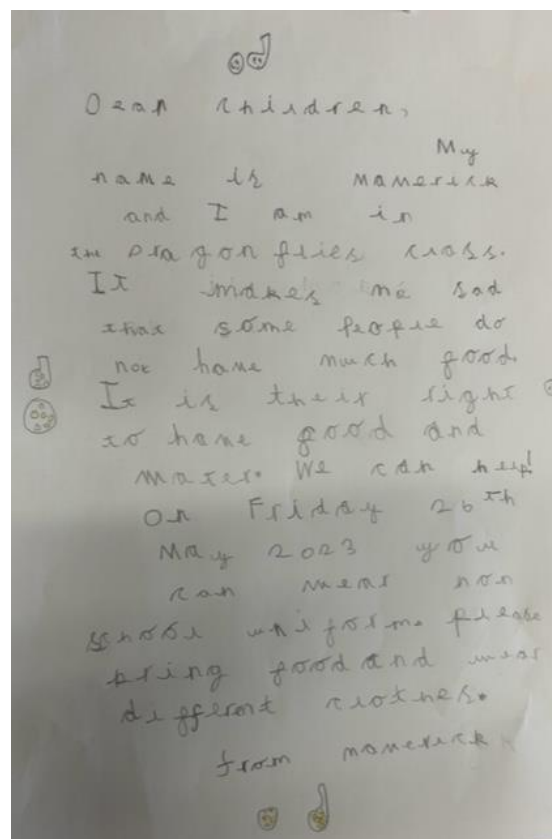 Dear children,
My
name is Maverick
and I am in
the Dragonflies class.
It makes me sad
that some people do
not have much food.
It is their right
to have food and
water. We can help!
On Friday 26th
May 2023 you
can wear non
school uniform. Please
bring food and wear
different clothes.
from maverick